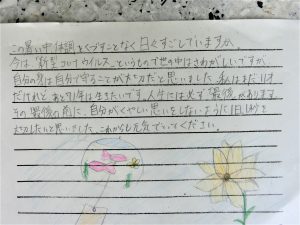 この暑い中体調をくずすことなく日々すごしていますか。
今は"新型コロナウイルス"というもので世の中はさわがしいですが、
自分の身は自分で守ることが大切だと思いました。私はまだ11才
だけれど、あと91年は生きたいです。人生には必ず"最後"があります。
その"最後"の前に、自分がくやしい思いをしないように1日1秒を
大切にしたいと思いました。これからも元気でいてください。